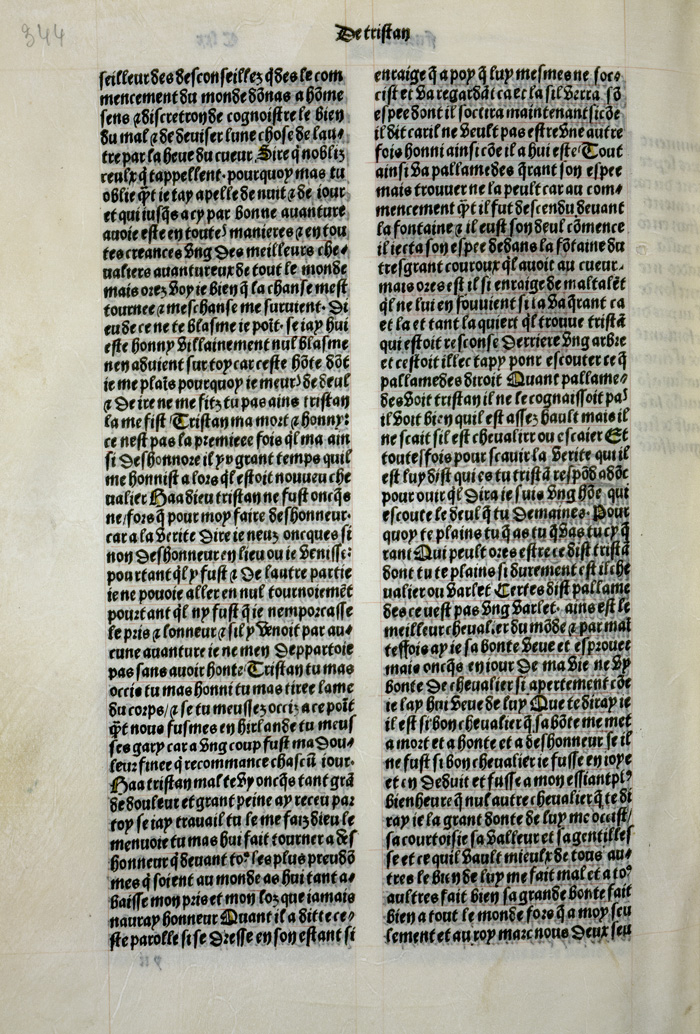 344
De tristan
seilleur des desconseillez q̄ des le com
mencement du monde dōnas a hōme
sens ⁊ discretron de cognoistre le bien
du mal ⁊ de deviser lune chose de lau⸗
tre par la heue du cueur Sire q̄ noblis
ceulx q̄ tappellent. pourquoy mas tu
oblie q̄t ie tay apelle de nuit ⁊ de iour
et qui iusq̄s a cy par bonne auanture
auoie este en toutes manieres ⁊ en tou
tes creances vng des meilleurs che⸗
ualiers auantureux de tout le monde
mais orez voy ie bien q̄ la chanse mest
tournee ⁊ meschanse me suruient. Di
eu de ce ne te blasme ie poīt. se iay hui
este honny villainement nul blasme
nen aduient sur toy car ceste hōte dōt
ie me plaīs pourquoy ie meurs de deul
⁊ de ire ne me fitz tu pas ains tristan
la me fist Tristan ma mort ⁊ honny:
ce nest pas la premieee fois q̄l ma ain
si deshonnore il y a grant temps quil
me honnist a lors q̄l estoit nouueu che
ualier Haa dieu tristan ne fust oncq̄s
ne/fors q̄ pour moy faire deshonneur.
car a la verite dire ie neuz oncques si
non deshonneur en lieu ou ie venisse:
pourtant q̄l y fust ⁊ de lautre partie
ie ne pouoie aller en nul tournoiemēt
pourtant q̄l ny fust q̄ ie nemporcasse
le pris ⁊ lonneur ⁊ sil y venoit par au⸗
cune auanture ie ne men deppartoie
pas sans auoir honte Tristan tu mas
occis tu mas honni tu mas tiree lame
du corps/⁊ se tu meussez occiz a ce poīt
q̄t nous fusmes en hirlande tu meus
ses gary car a vng coup fust ma dou⸗
leur finee q̄ recommance chascū iour.
Haa tristan mal te vy oncq̄s tant grā
de douleur et grant peine ay receu par
toy se iay trauail tu le me faiz dieu le
menuoie tu mas hui fait tourner a des
honneur q̄ deuant to⁹ ses plus preudō
mes q̄ soient au monde as hui tant a⸗
baisse mon pris et mon loz que iamais
nauray honneur Quant il a ditte ce⸗
ste parolle si se dresse en son estant si
enraige q̄ a poy q̄ luy mesmes ne soc⸗
cist et va regardāt ca et la sil verra sō
espee dont il soccira maintenant si cōe
il dit car il ne veult pas estre vne autre
fois honni ainsi cōe il a hui este Tout
ainsi va pallamedes q̄rant son espee
mais trouuer ne la peult car au com⸗
mencement q̄t il fut descendu deuant
la fontaine ⁊ il eust son deul cōmence
il iecta son espee dedans la fōtaine du
tresgrant couroux q̄l auoit au cueur.
mais ores est il si enraige de maltalēt
q̄l ne lui en souuient si la va q̄rant ca
et la et tant la quiert q̄l trouue tristā
qui estoit resconse derriere vng arbre
et cestoit illec tapy ponr escouter ce q̄
pallamedes diroit Quant pallame⸗
des voit tristan il ne le cognaissoit pas
il voit bien quil est assez hault mais il
ne scait sil est chevalier ou escaier Et
toutesfois pour scauir la verite qui il
est luy dist qui es tu tristā respōd adōc
pour ouir q̄l dira ie suis vng hōe qui
escoute le deul q̄ tu demaines. Pour
quoy te plains tu q̄ as tu q̄ vas tu cy q̄
rant Qui peult ores estre ce dist tristā
dont tu te plains si durement est il che
ualier ou varlet Certes dist pallame
des ce uest pas vng varlet. ains est le
meilleur chevalier du mōde ⁊ par mai
teffois ay ie sa bonte veue et esprouee
mais oncq̄s en iour de ma vie ne vy
bonte de chevalier si apertement cōe
ie lay hui veue de luy Que te diray ie
il est si bon cheualier q̄ sa bōte me met
a mort et a honte et a deshonneur se il
ne fust si bon cheualier ie fusse en ioye
et en deduit et fusse a mon essiant pl⁹
bienheure q̄ nul autre cheualier q̄ te di
ray ie la grant bonte de luy me occist/
sa courtoisie sa valleur et sa gentilles
se et ce quil vault mieulx de tous au⸗
tres le bien de luy me fait mal et a to⁹
aultres fait bien sa grande bonte fait
bien a tout le monde fors q̄ a moy seu
lement et au roy marc nous deux seu